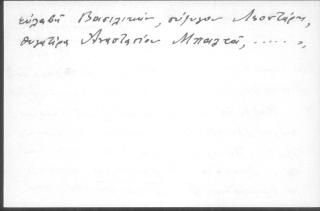 εὐλαβῆ Βασιλικήν, σύζυγον Λεοντάρη,
θυγατέρα Ἀναστασίου Μπαλτᾶ, ..... »,